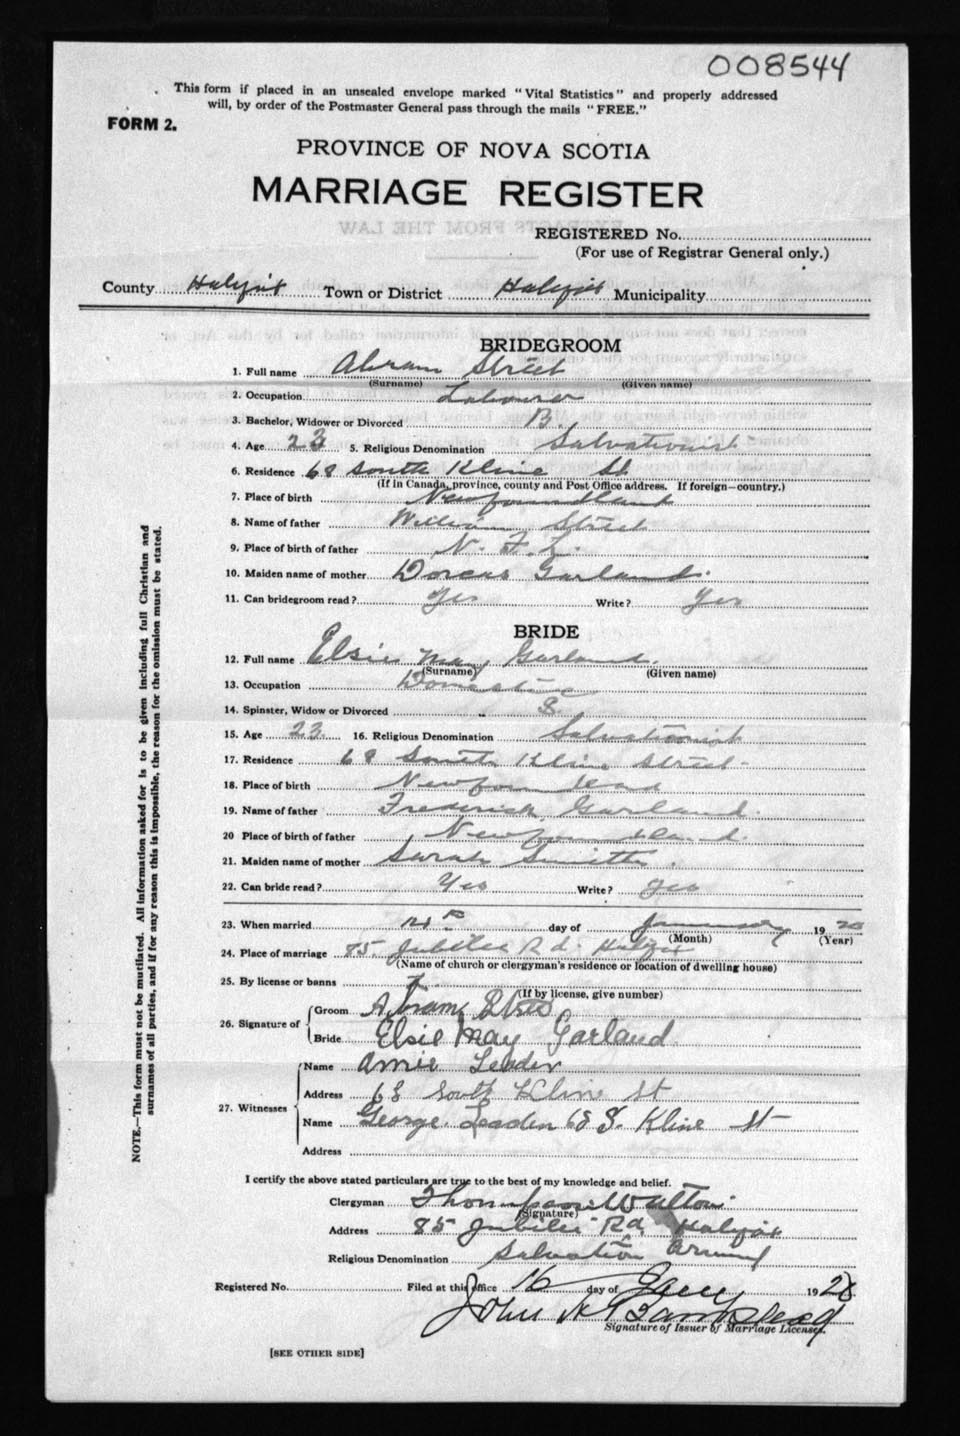 008544
This form if placed in an unsealed envelope marked "Vital Statistics" and properly addressed
will, by order of the Postmaster General pass through the mails "FREE."
FORM 2.
PROVINCE OF NOVA SCOTIA
MARRIAGE REGISTER
REGISTERED No.
(For use of Registrar General only.)
County Halifax Town or District Halifax Municipality
BRIDEGROOM
1. Full name Abram Street
(Surname) (Given name)
2. Occupation Labourer
3. Bachelor, Widower or Divorced B.
4. Age 23 5. Religious Denomination Salvationist
6. Residence 68 South Kline St.
(If in Canada, province, county and Post Office address. If foreign—country.)
7. Place of birth Newfoundland
8. Name of father William Street
9. Place of birth of father N. F. L.
10. Maiden name of mother Dorcas Garland.
11. Can bridegroom read? Yes Write? Yes
BRIDE
12. Full name Elsie May Garland.
(Surname) (Given name)
13. Occupation Domestic
14. Spinster, Widow or Divorced S.
15. Age 23. 16. Religious Denomination Salvationist
17. Residence 68 South Kline Street.
18. Place of birth Newfoundland
19. Name of father Frederick Garland.
20 Place of birth of father Newfoundland.
21. Maiden name of mother Sarah Smith.
22. Can bride read? Yes Write? Yes
23. When married 14th day of January 1920
(Month) (Year)
24. Place of marriage 85. Jubilee Rd. Halifax
(Name of church or clergyman's residence or location of dwelling house)
25. By license or banns
(If by license, give number)
26. Signature of Groom Abram Street
Bride Elsie May Garland.
27. Witnesses Name Annie Leader
Address 68 South Kline St
Name George. Leaden 68 S. Kline St
Address
I certify the above stated particulars are true to the best of my knowledge and belief.
Clergyman Thompson Walton.
(Signature)
Address 85 Jubilee Rd. Halifax
Religious Denomination Salvation Army
Registered No. Filed at this office 16 day of Jany 192
John H Barnstead
Signature of Issuer of Marriage Licenses.
[SEE OTHER SIDE]
NOTE.—This form must not be mutilated. All information asked for is to be given including full Christian and
surnames of all parties, and if for any reason this is impossible, the reason for the omission must be stated.